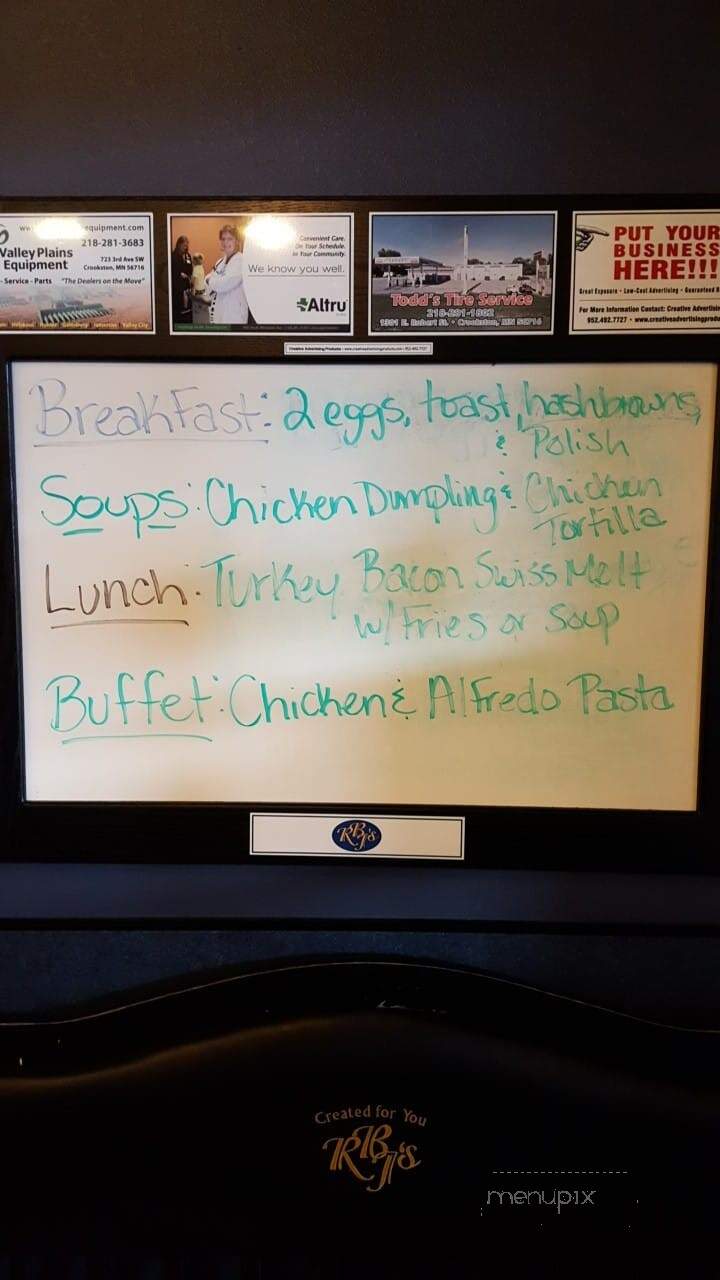 equipment.com
218-281-3683
Valley Plains
Equipment
723 3rd Ave SW
Crookston, MN 56716
- Service - Parts "The Dealers on the Move"
Convenient Care.
On Your Schedule.
In Your Community.
We know you well.
Altru
Todd's Tire Service
218-281-1802
1321 E. Robert St. • Crookston, MN 56716
PUT YOUR
BUSINESS
HERE!!!
Great Exposure • Low-Cost Advertising • Guaranteed
For More Information Contact: Creative Advertising
952.492.7727 • www.creativeadvertisingprodu
Creative Advertising Products - www.creativeadvertisingproducts.com - 952.492.7727
Breakfast: 2 eggs, toast, hashbrowns,
& Polish
Soups: Chicken Dumpling & Chicken
Tortilla
Lunch: Turkey Bacon Swiss Melt
w/ Fries or Soup
Buffet: Chicken & Alfredo Pasta
RBJ's
Created for You
RBJ's
menupix